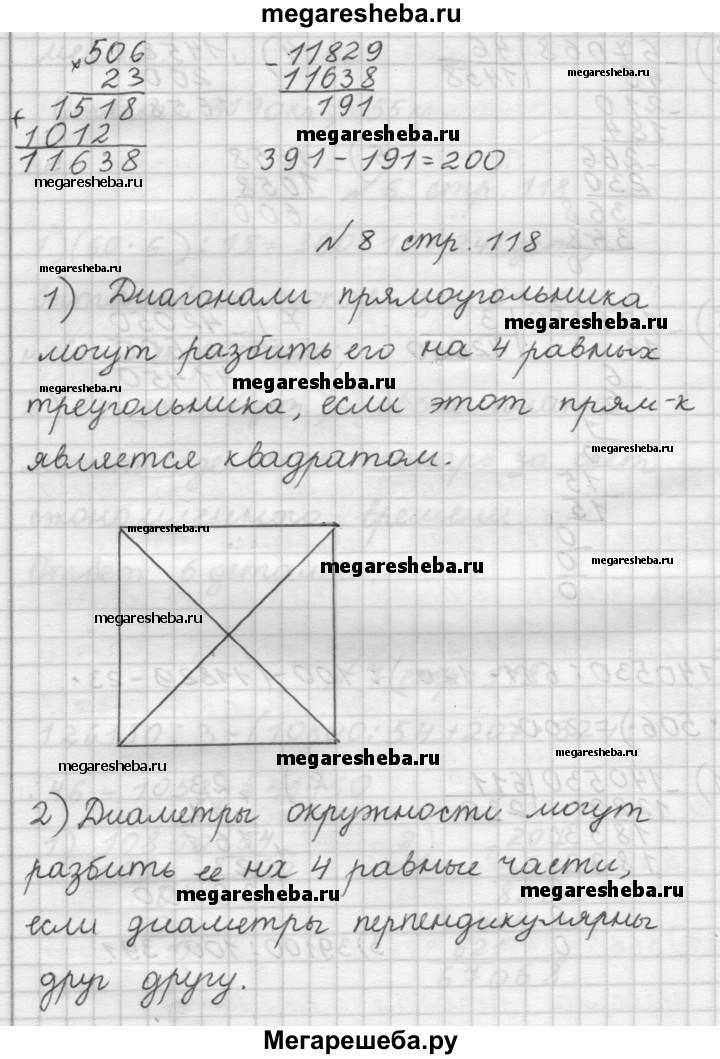 megaresheba.ru
×506 - 11829
23 11638
+ 1518 191
1012 megaresheba.ru
11638 391 - 191 = 200
megaresheba.ru
megaresheba.ru
N 8 стр. 118
megaresheba.ru
1) Диагонали прямоугольника
megaresheba.ru
могут разбить его на 4 равных
megaresheba.ru megaresheba.ru
треугольника, если этот прям-к
megaresheba.ru
является квадратом.
megaresheba.ru
megaresheba.ru
megaresheba.ru
megaresheba.ru
megaresheba.ru
megaresheba.ru
megaresheba.ru
2) Диаметры окружности могут
разбить ее нх 4 равные части,
megaresheba.ru megaresheba.ru
если диаметры перпендикулярны
друг другу.
Мегарешеба.ру